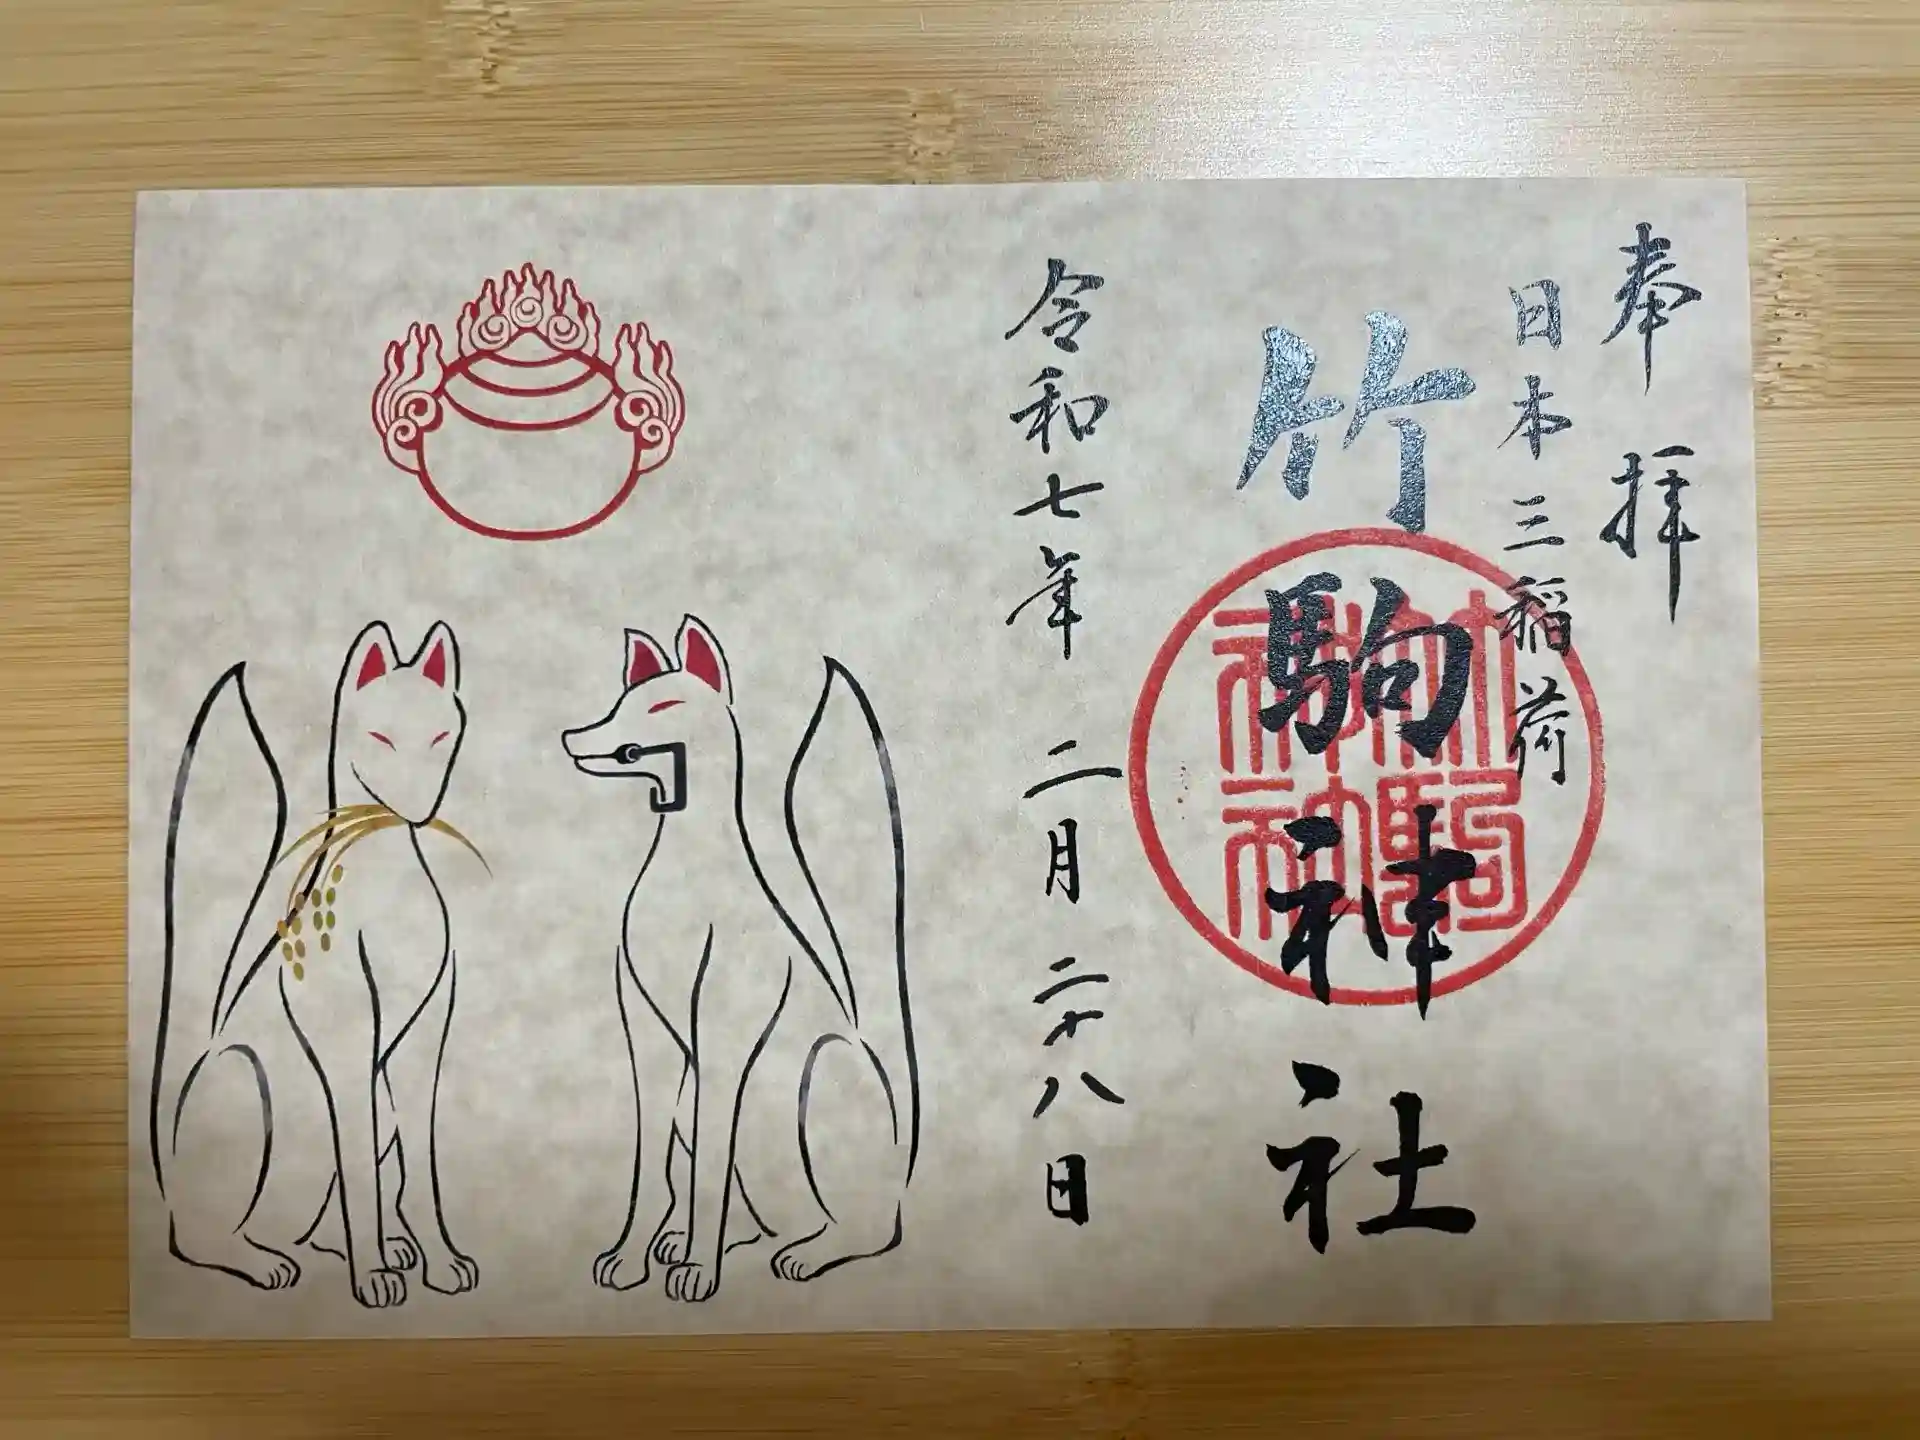 奉拝
日本三稲荷
竹駒神社
竹駒神社
令和七年 二月二十八日